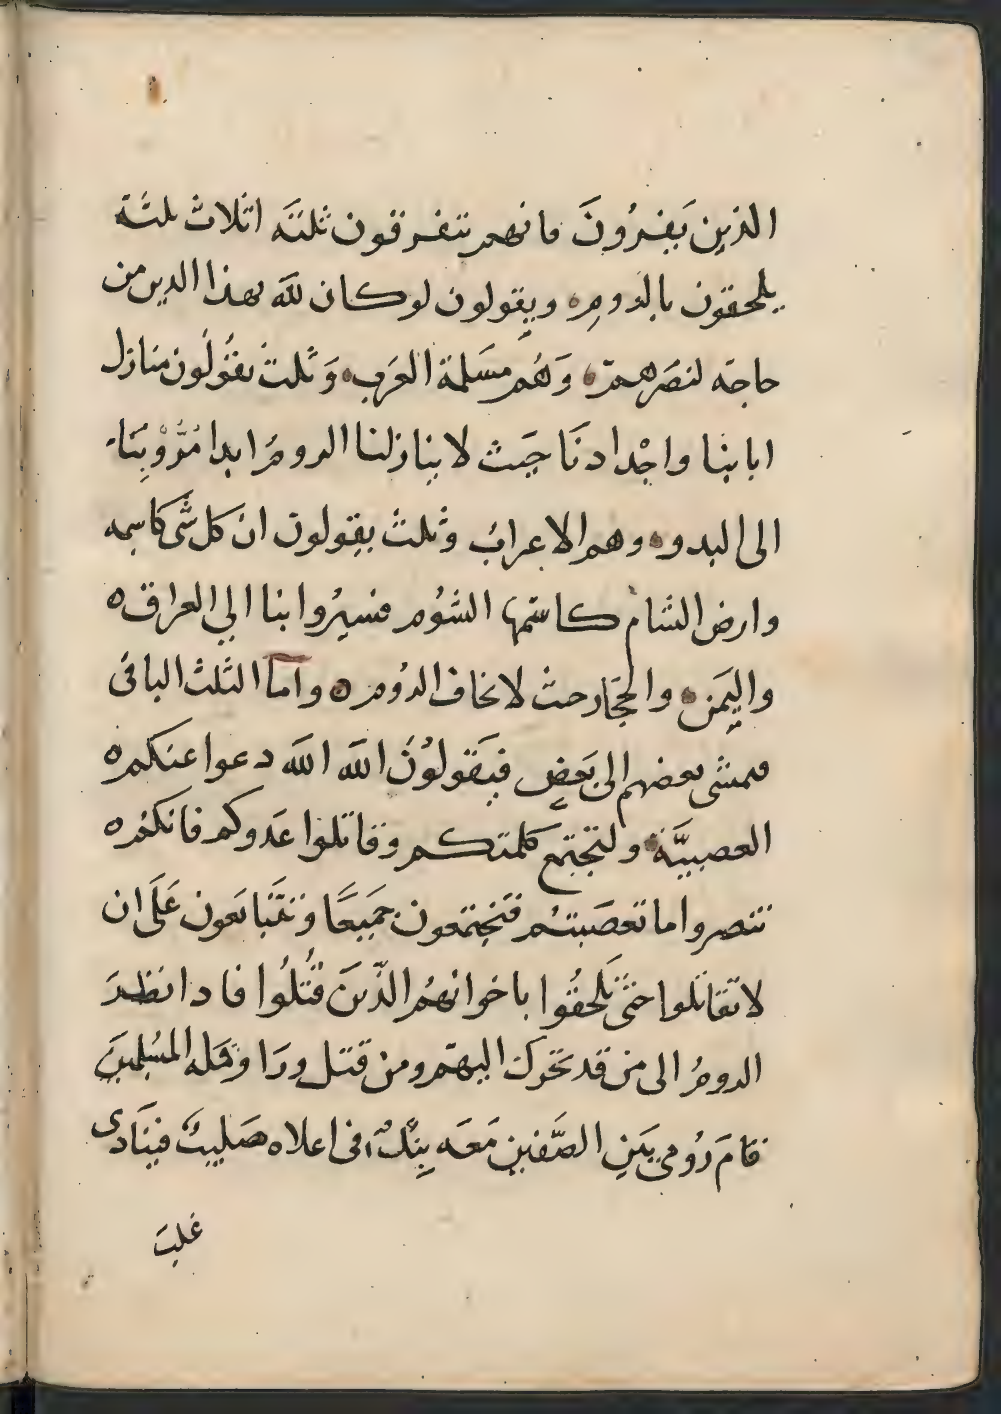 الذين يَفِرُونَ فانهم يتفرقون ثلثَة اثلاث ثلثة
يلحقون بالروم ويقولون لو كان لله بهذا الدين من
حاجة لنصَرهم وَهُم مسَلمة العَرب وَثلث يقُولُون منازل
ابابنا واجْدادنَا حيَث لا ينازلنا الرومُ ابدا مُرُّوْ بِنَا
الى البدو وهم الاعرابُ وثلثُ يقولون انّ كل شَى كاسمه
وارض الشام كاسمها الشوُم فسيرُوا بنا الي العراق ه
واليَمن والحجَاز حيث لا نخاف الرُوم ه وامَا الثلث الباقى
فيمشى بعضهم الى بَعضٍ فيَقولُوُنَ اللهَ اللهَ دعوا عنكم ه
العصبيَّة ولتجتمع كلمتكم وقاتلوا عَدوكم فانكم ه
تنصروا ما تعصَبتُم فتجتمعون جميَعًا وَيَتَبايَعون عَلَى ان
لا تقاتلوا حتىَ تلحقُوا باخوانهُم الذّينَ قُتُلُوا فاذا نظرَ
الرومُ الى من قد تحَرك اليهم ومن قتل ورَاوْ قلة المسُلمينَ
قامَ رُومي بَين الصَّفين مَعَه بنْدٌ فى اعلاه صَليبٌ فينَادى
غلبَ